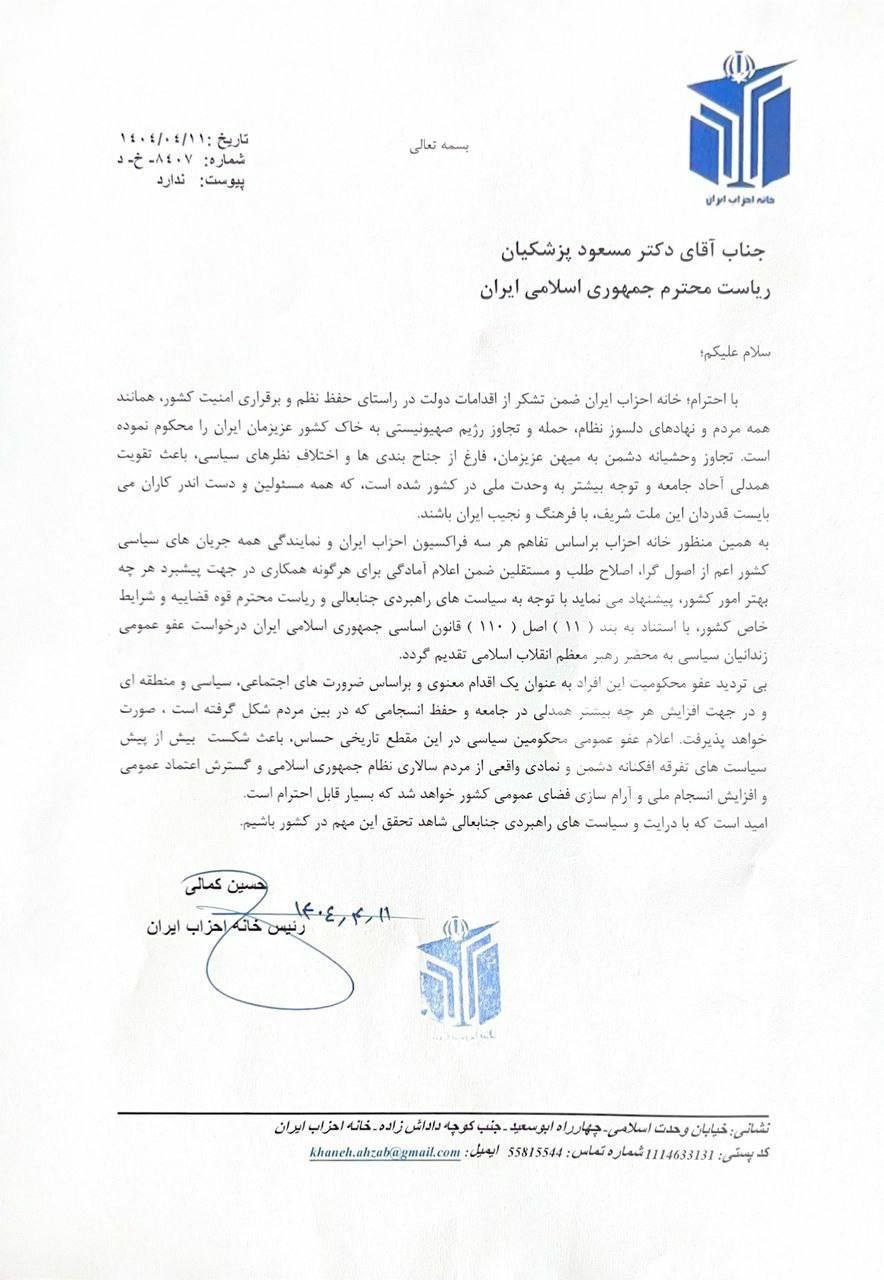 خانه احزاب ایران
تاریخ :۱۴۰۴/۰۴/۱۱
شماره: ۸۴۰۷- خ- د
پیوست: ندارد
بسمه تعالی
جناب آقای دکتر مسعود پزشکیان
ریاست محترم جمهوری اسلامی ایران
سلام علیکم؛
با احترام؛ خانه احزاب ایران ضمن تشکر از اقدامات دولت در راستای حفظ نظم و برقراری امنیت کشور، همانند
همه مردم و نهادهای دلسوز نظام، حمله و تجاوز رژیم صهیونیستی به خاک کشور عزیزمان ایران را محکوم نموده
است. تجاوز وحشیانه دشمن به میهن عزیزمان، فارغ از جناح بندی ها و اختلاف نظرهای سیاسی، باعث تقویت
همدلی آحاد جامعه و توجه بیشتر به وحدت ملی در کشور شده است، که همه مسئولین و دست اندر کاران می
بایست قدردان این ملت شریف، با فرهنگ و نجیب ایران باشند.
به همین منظور خانه احزاب براساس تفاهم هر سه فراکسیون احزاب ایران و نمایندگی همه جریان های سیاسی
کشور اعم از اصول گرا، اصلاح طلب و مستقلین ضمن اعلام آمادگی برای هرگونه همکاری در جهت پیشبرد هر چه
بهتر امور کشور، پیشنهاد می نماید با توجه به سیاست های راهبردی جنابعالی و ریاست محترم قوه قضاییه و شرایط
خاص کشور، با استناد به بند ( ۱۱ ) اصل ( ۱۱۰ ) قانون اساسی جمهوری اسلامی ایران درخواست عفو عمومی
زندانیان سیاسی به محضر رهبر معظم انقلاب اسلامی تقدیم گردد.
بی تردید عفو محکومیت این افراد به عنوان یک اقدام معنوی و براساس ضرورت های اجتماعی، سیاسی و منطقه ای
و در جهت افزایش هر چه بیشتر همدلی در جامعه و حفظ انسجامی که در بین مردم شکل گرفته است ، صورت
خواهد پذیرفت. اعلام عفو عمومی محکومین سیاسی در این مقطع تاریخی حساس، باعث شکست بیش از پیش
سیاست های تفرقه افکنانه دشمن و نمادی واقعی از مردم سالاری نظام جمهوری اسلامی و گسترش اعتماد عمومی
و افزایش انسجام ملی و آرام سازی فضای عمومی کشور خواهد شد که بسیار قابل احترام است.
امید است که با درایت و سیاست های راهبردی جنابعالی شاهد تحقق این مهم در کشور باشیم.
حسین کمالی
۱۴۰۴,۴,۱۱
رئیس خانه احزاب ایران
نشانی: خیابان وحدت اسلامی- چهارراه ابوسعید- جنب کوچه داداش زاده- خانه احزاب ایران
کد پستی: 1114633131 شماره تماس: 55815544 ایمیل: khaneh.ahzab@gmail.com